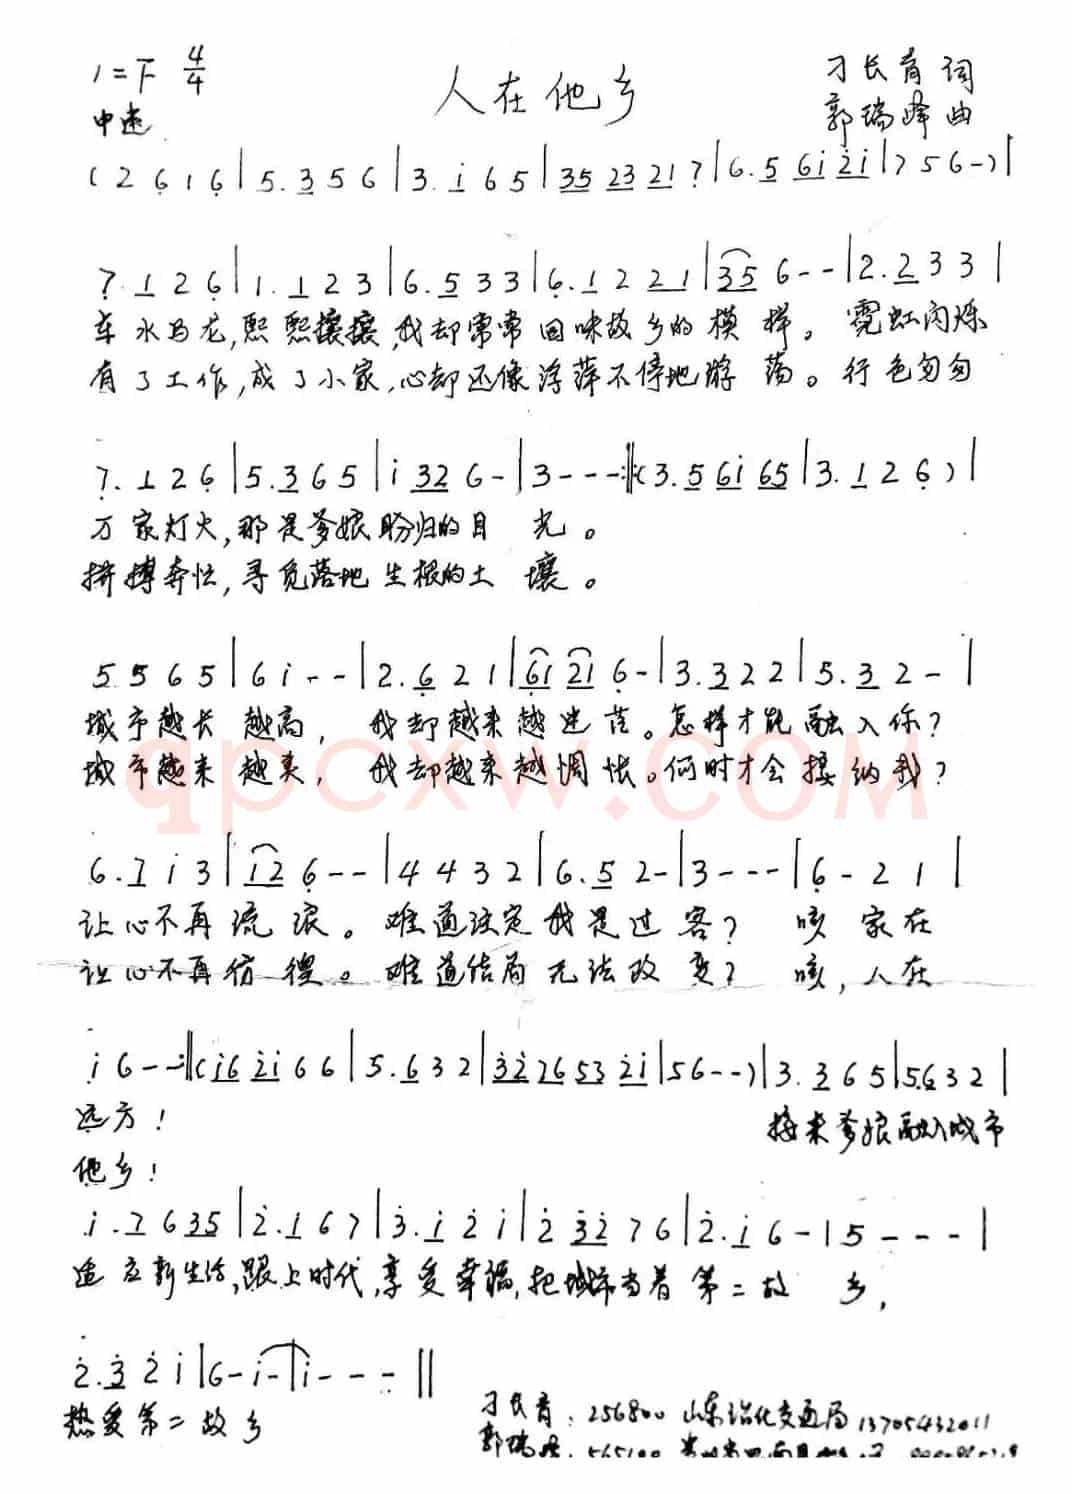 1=F 4/4
人在他乡
刁长育 词
中速
郭瑞峰 曲
(2 6 1 6|5. 3 5 6|3. i 6 5|35 23 21 7|6. 5 6i 2i|7 5 6-)|
7. 1 2 6|1. 1 2 3|6. 5 3 3|6. 1 2 21|35 6--|2. 2 3 3|
车水马龙,熙熙攘攘,我却常常回味故乡的模样。霓虹闪烁
有了工作,成了小家,心却还像浮萍不停地游荡。行色匆匆
7. 1 2 6|5. 3 6 5|i 32 6-|3---:‖(3. 5 6i 65|3. 1 2 6)|
万家灯火,那是爹娘盼归的目光。
拼搏奔忙,寻觅落地生根的土壤。
5 5 6 5|6 i--|2. 6 2 1|61 21 6-|3. 3 2 2|5. 3 2-|
城市越长越高,我却越来越迷茫。怎样才能融入你?
城市越来越美,我却越来越惆怅。何时才会接纳我?
qpcxw.com
6. 7 i 3|12 6--|4 4 3 2|6. 5 2-|3---|6-2 1|
让心不再流浪。难道注定我是过客?咳家在
让心不再彷徨。难道结局无法改变?咳,人在
i 6--:‖(i6 2i 6 6|5. 6 3 2|32 76 53 2i|5 6--)|3. 3 6 5|5.6 3 2|
远方!
接来爹娘融入城市
他乡!
i. 7 6 35|2. 1 6 7|3. i 2 i|2 32 7 6|2. i 6-|5---|
适应新生活,跟上时代,享受幸福,把城市当着第二故乡,
2. 3 2 i|6-i-|i---‖
热爱第二故乡
刁长育:256800 山东沾化交通局 13705432011
郭瑞峰:565100